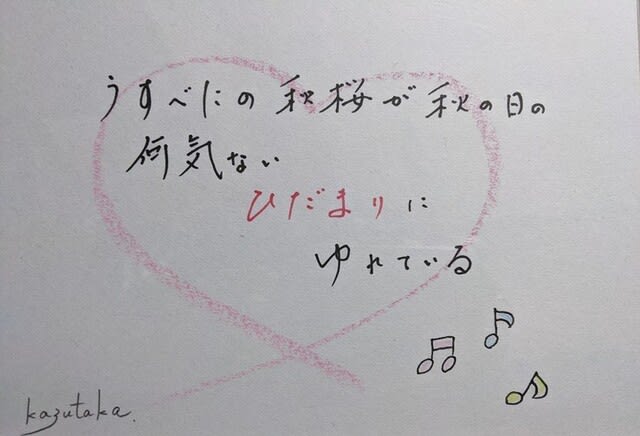 うすべにの秋桜が秋の日の
何気ない
ひだまりに
ゆれている
kazutaka.